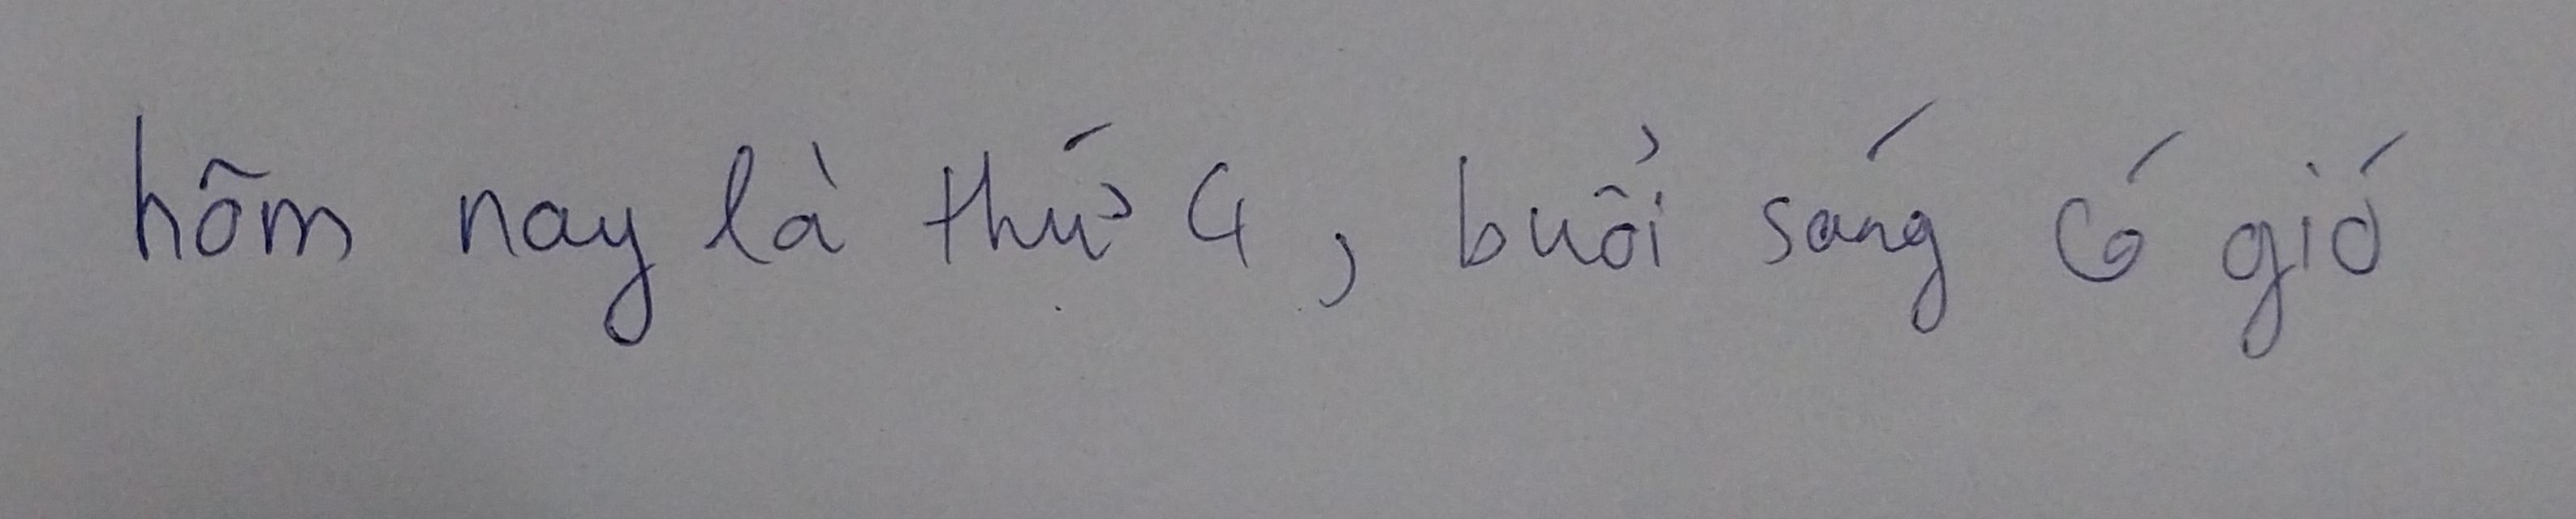 hôm nay là thứ 4, buổi sáng có gió